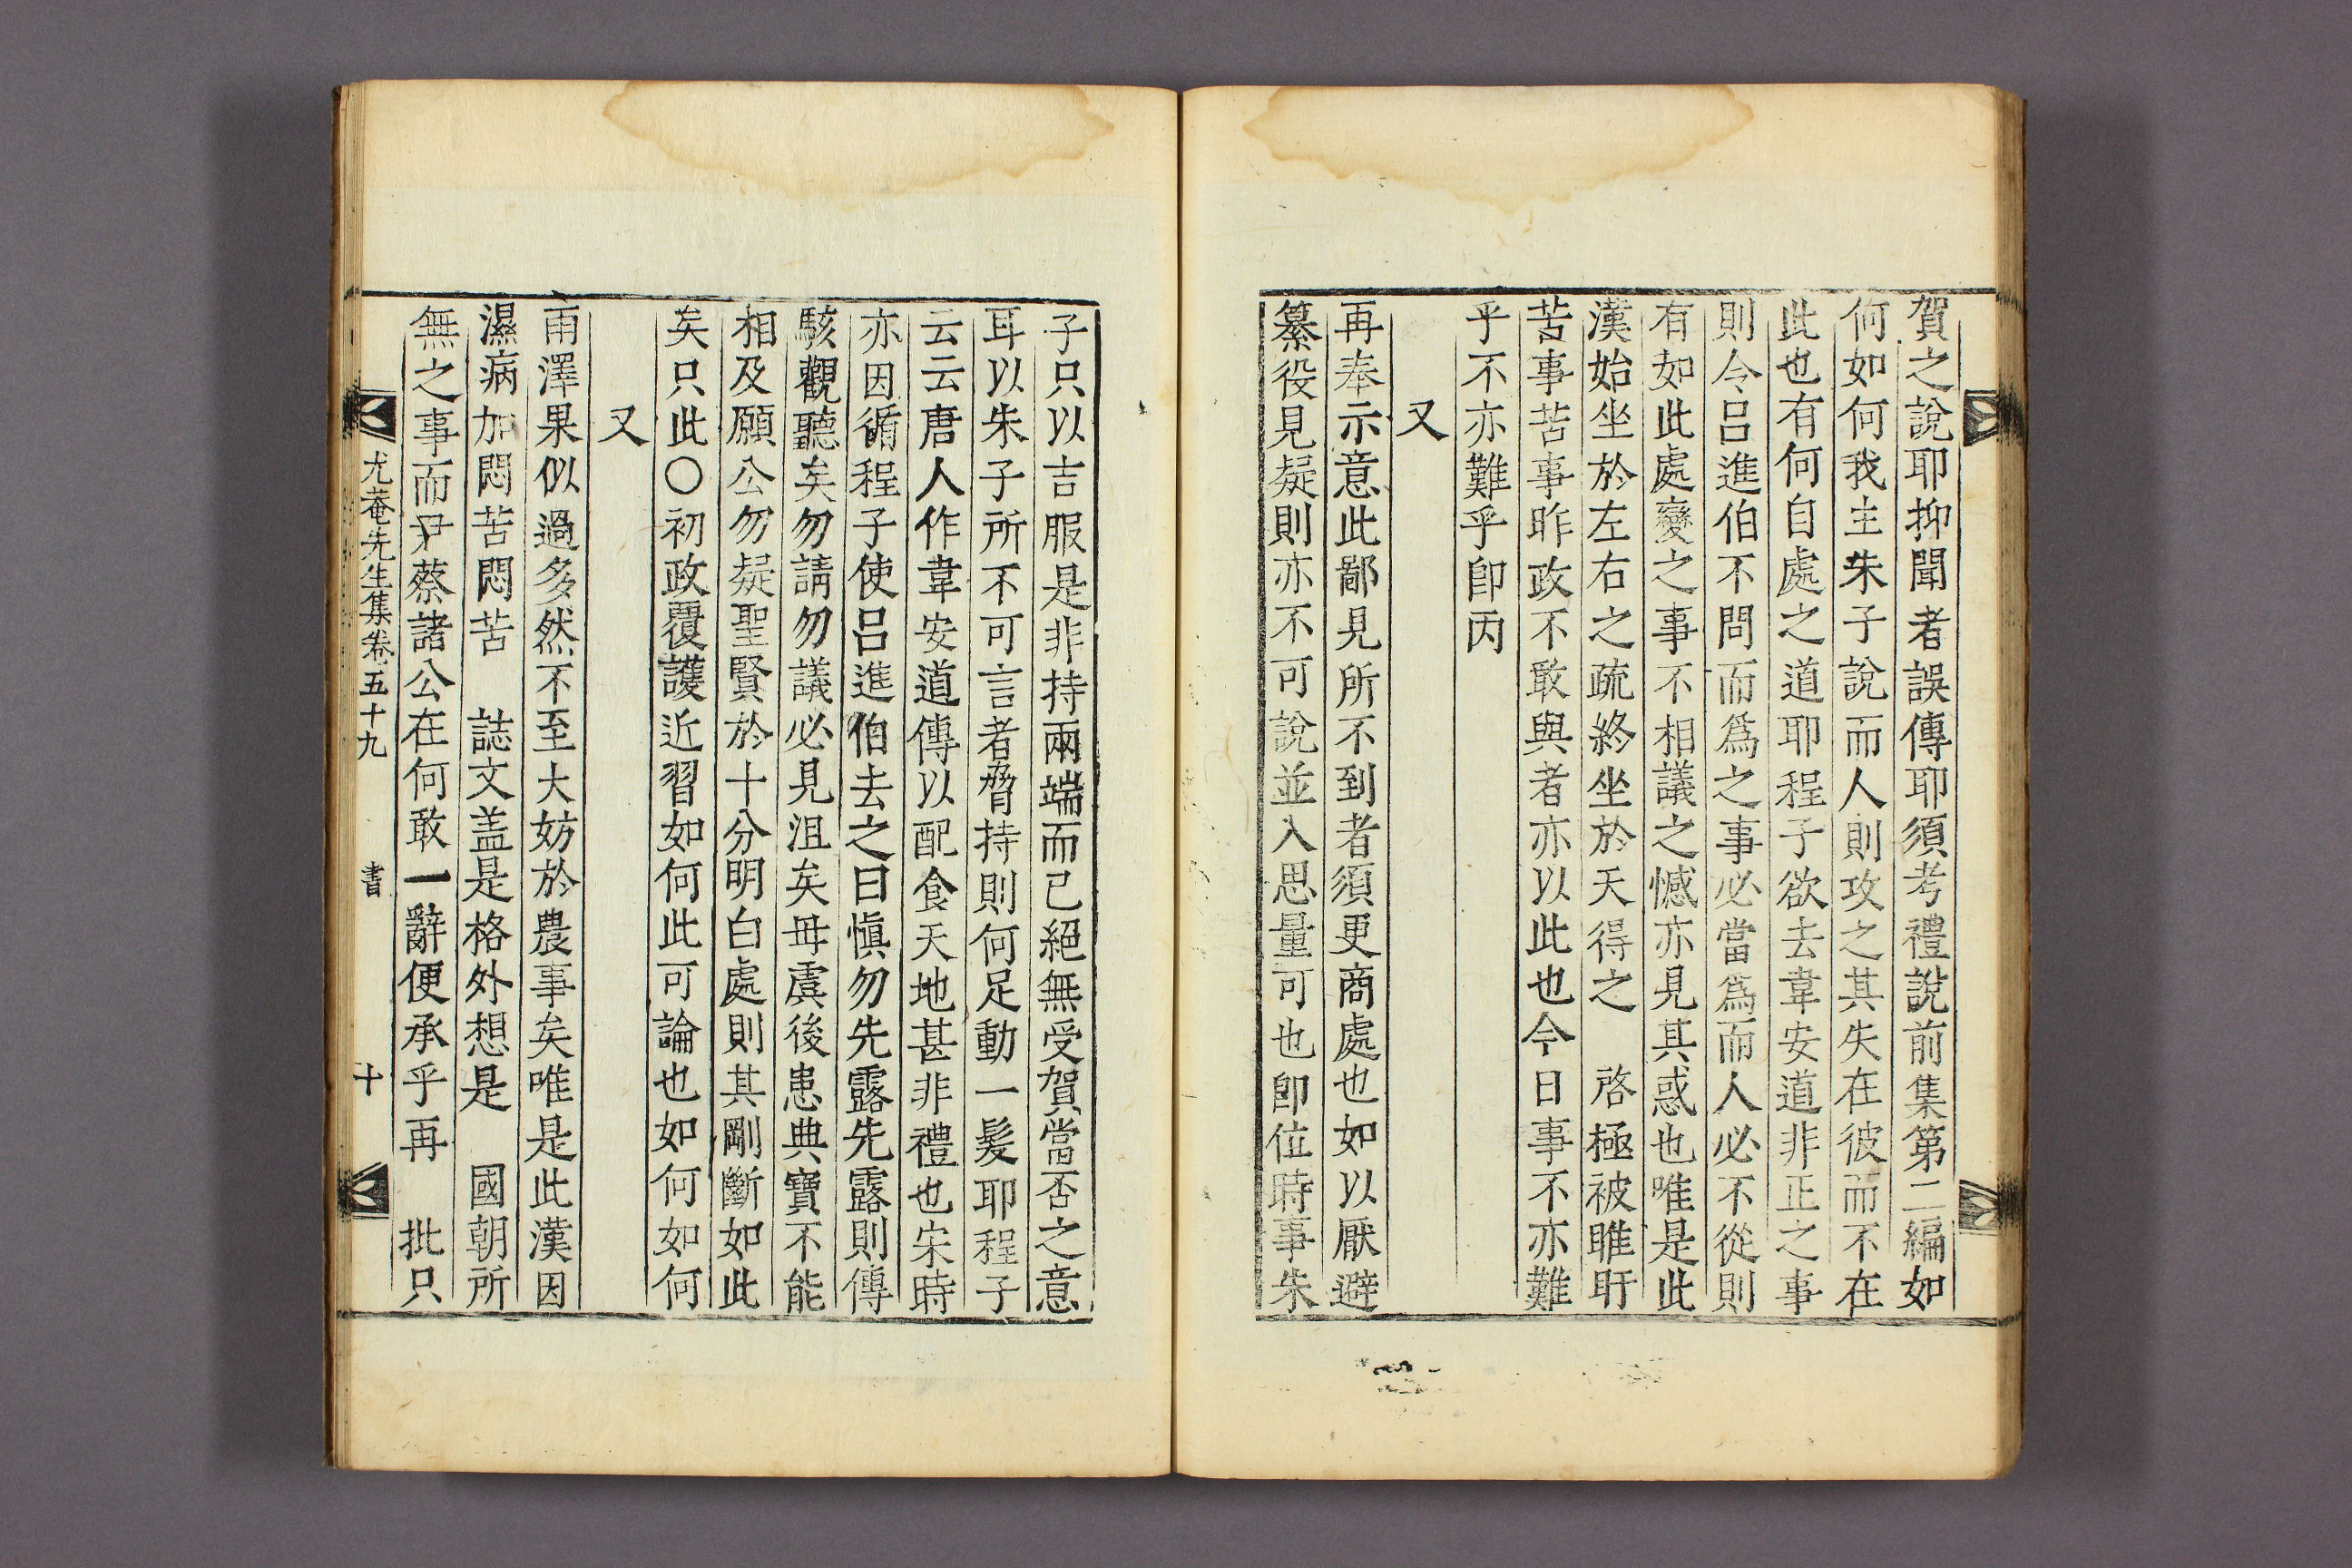 賀之說耶抑聞者誤傳耶須考禮說前集第二編如
何如何我主朱子說而人則攻之其失在彼而不在
此也有何自處之道耶程子欲去韋安道非正之事
則令呂進伯不問而爲之事必當爲而人必不從則
有如此處變之事不相議之憾亦見其惑也唯是此
漢始坐於左右之疏終坐於天得之 啓極被睢盱
苦事苦事昨政不敢與者亦以此也今日事不亦難
乎不亦難乎卽丙
又
再奉示意此鄙見所不到者須更商處也如以厭避
纂役見疑則亦不可說並入思量可也卽位時事朱
子只以吉服是非持兩端而已絕無受賀當否之意
耳以朱子所不可言者脅持則何足動一髮耶程子
云云唐人作韋安道傳以配食天地甚非禮也宋時
亦因循程子使呂進伯去之曰愼勿先露先露則傳
駭觀聽矣勿請勿議必見沮矣毋虞後患典寶不能
相及願公勿疑聖賢於十分明白處則其剛斷如此
矣只此○初政覆護近習如何此可論也如何如何
又
雨澤果似過多然不至大妨於農事矣唯是此漢因
濕病加悶苦悶苦 誌文盖是格外想是 國朝所
無之事而尹蔡諸公在何敢一辭便承乎再 批只
尤菴先生集卷五十九 書 十